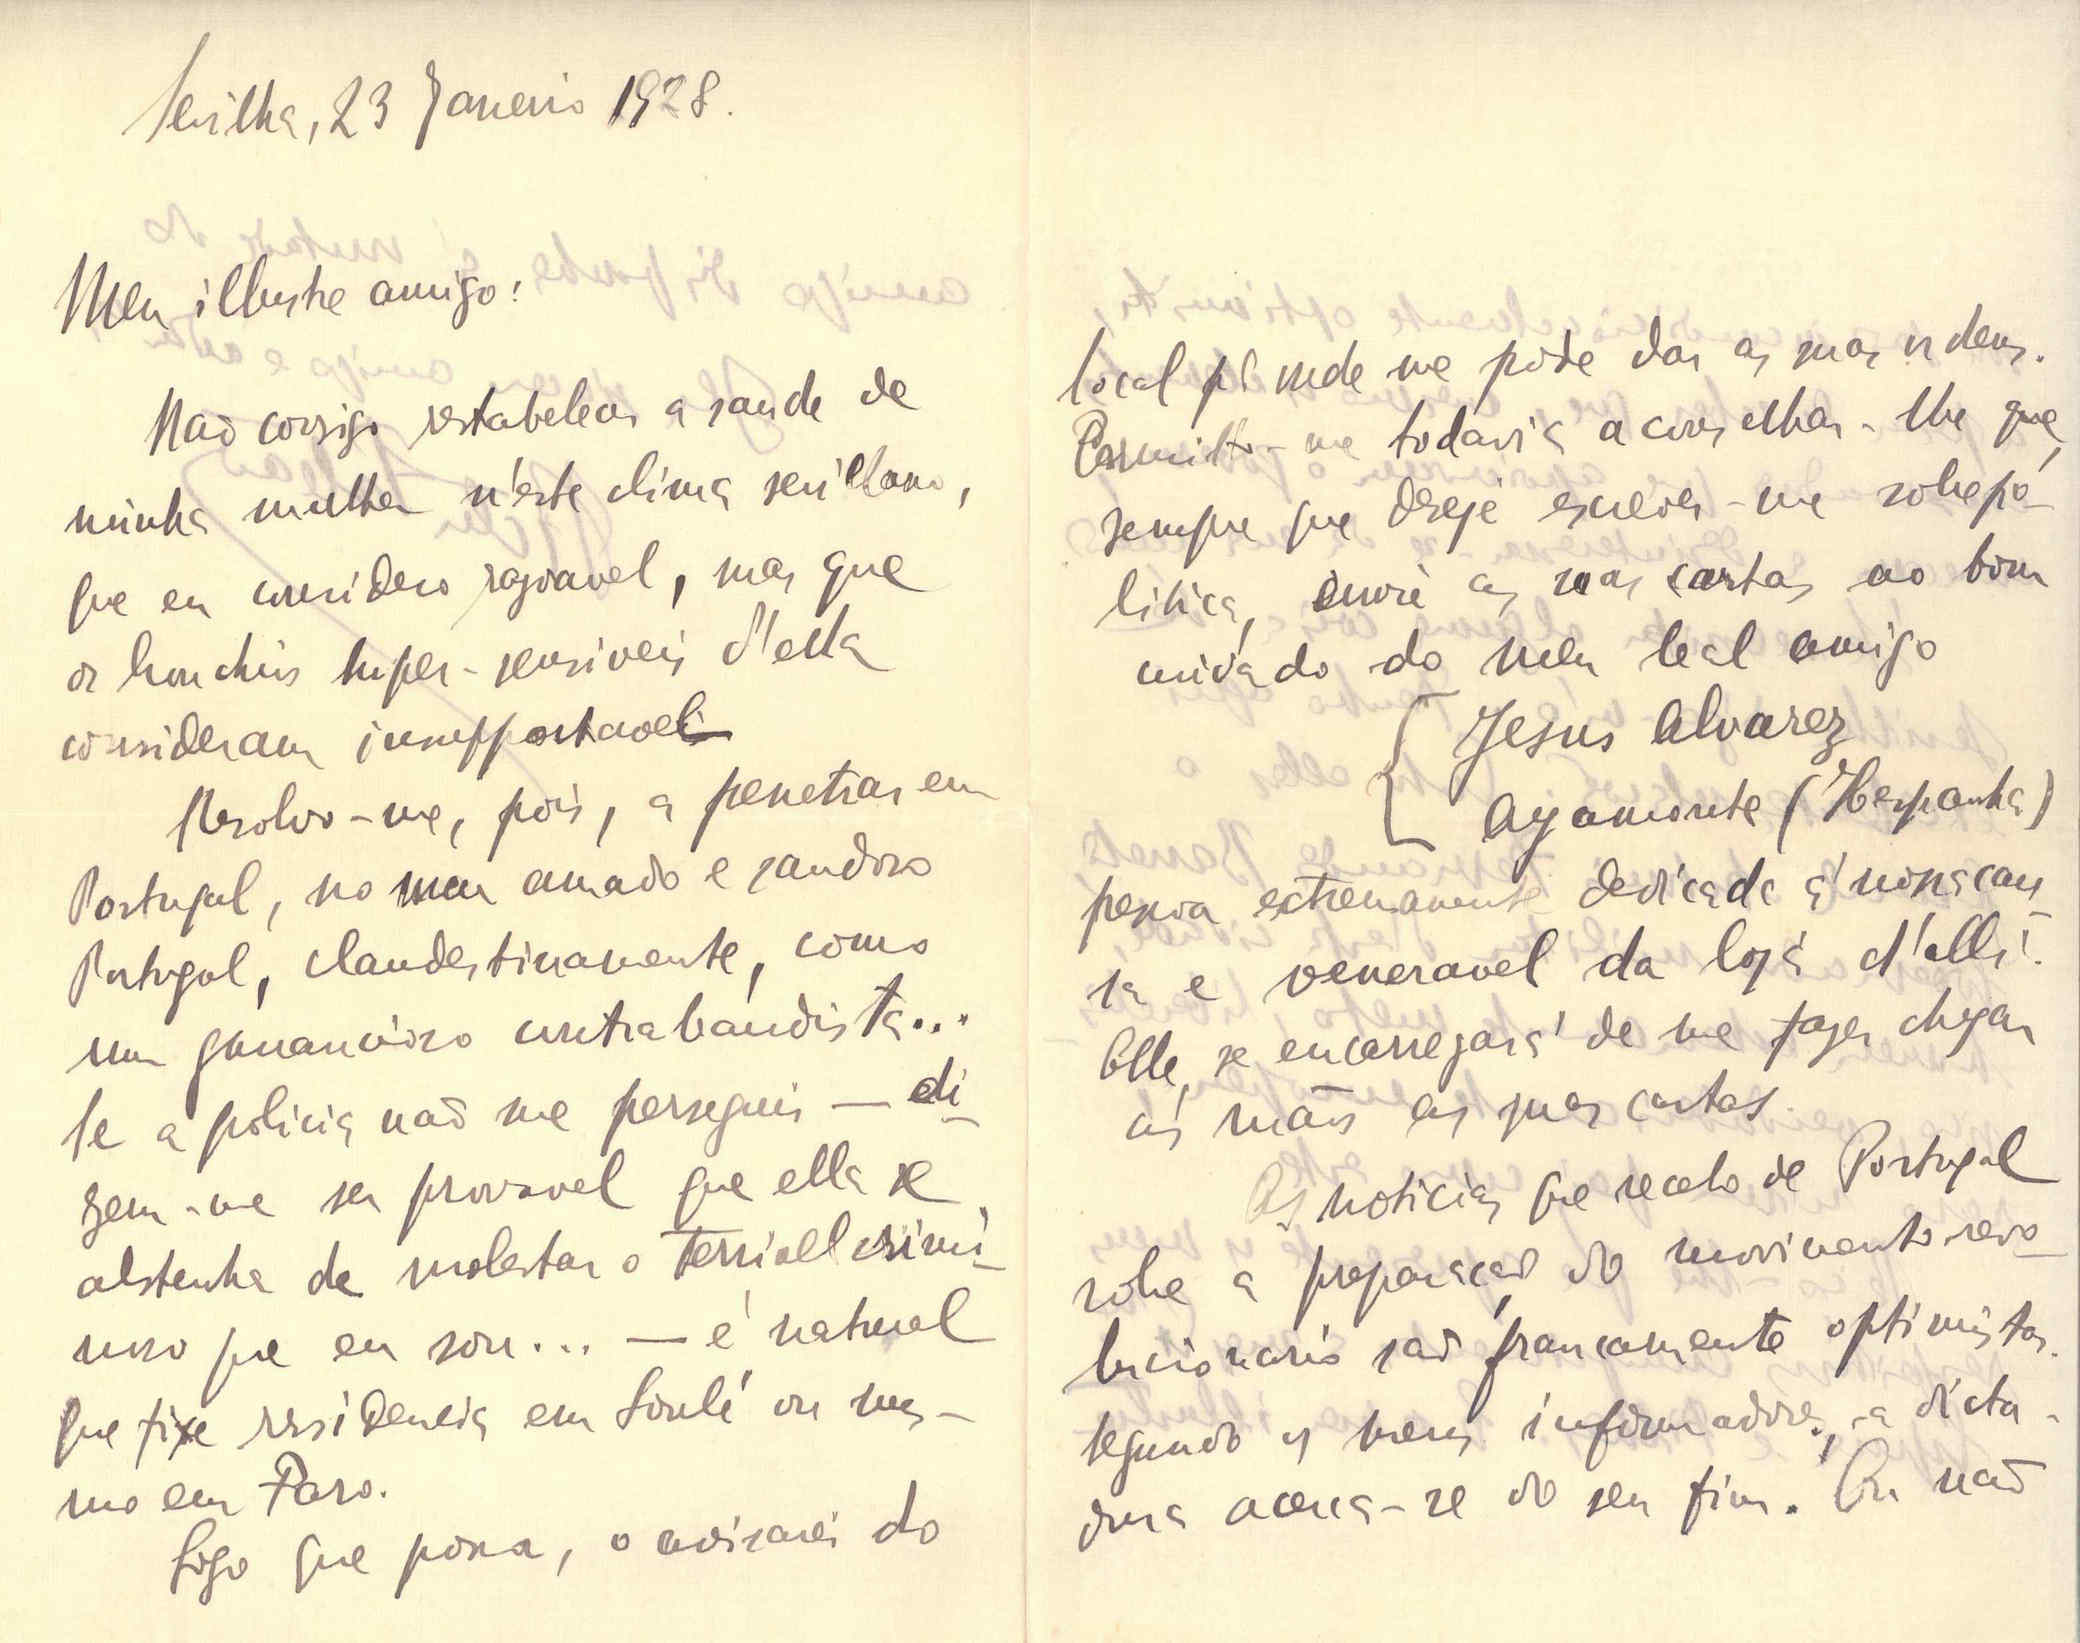 Sevilha, 23 Janeiro 1928.
Meu illustre amigo:
Não consigo restabelecer a saude de
minha mulher n'este clima sevilhano,
que eu considero rasoavel, mas que
os bronchios hyper-sensiveis d'ella
consideram insupportavel
Resolvo-me, pois, a penetrar em
Portugal, no meu amado e saudoso
Portugal, clandestinamente, como
um ganancioso contrabandista...
Se a policia não me perseguir — di-
zem-me ser provavel que ella se
abstenha de molestar o terrivel crimi-
noso que eu sou... — é natural
que fixe residencia em Loulé ou mes-
mo em Faro.
Logo que possa, o avisarei do
local p.ª onde me pode dar as suas ordens.
Permitto-me todavia aconselhar-lhe que,
sempre que deseje escrever-me sobre po-
litica, envie as suas cartas ao bom
cuidado do meu leal amigo
Jesus Alvarez
Ayamonte (Hespanha)
pessoa extremamente dedicada á nossa cau-
sa e veneravel da loja d'alli.
Elle se encarregará de me fazer chegar
ás mãos as suas cartas.
As noticias que recebo de Portugal
sobre a preparação do movimento revo-
lucionario são francamente optimistas.
Segundo os meus informadores, a dicta-
dura acerca-se do seu fim. Ou não